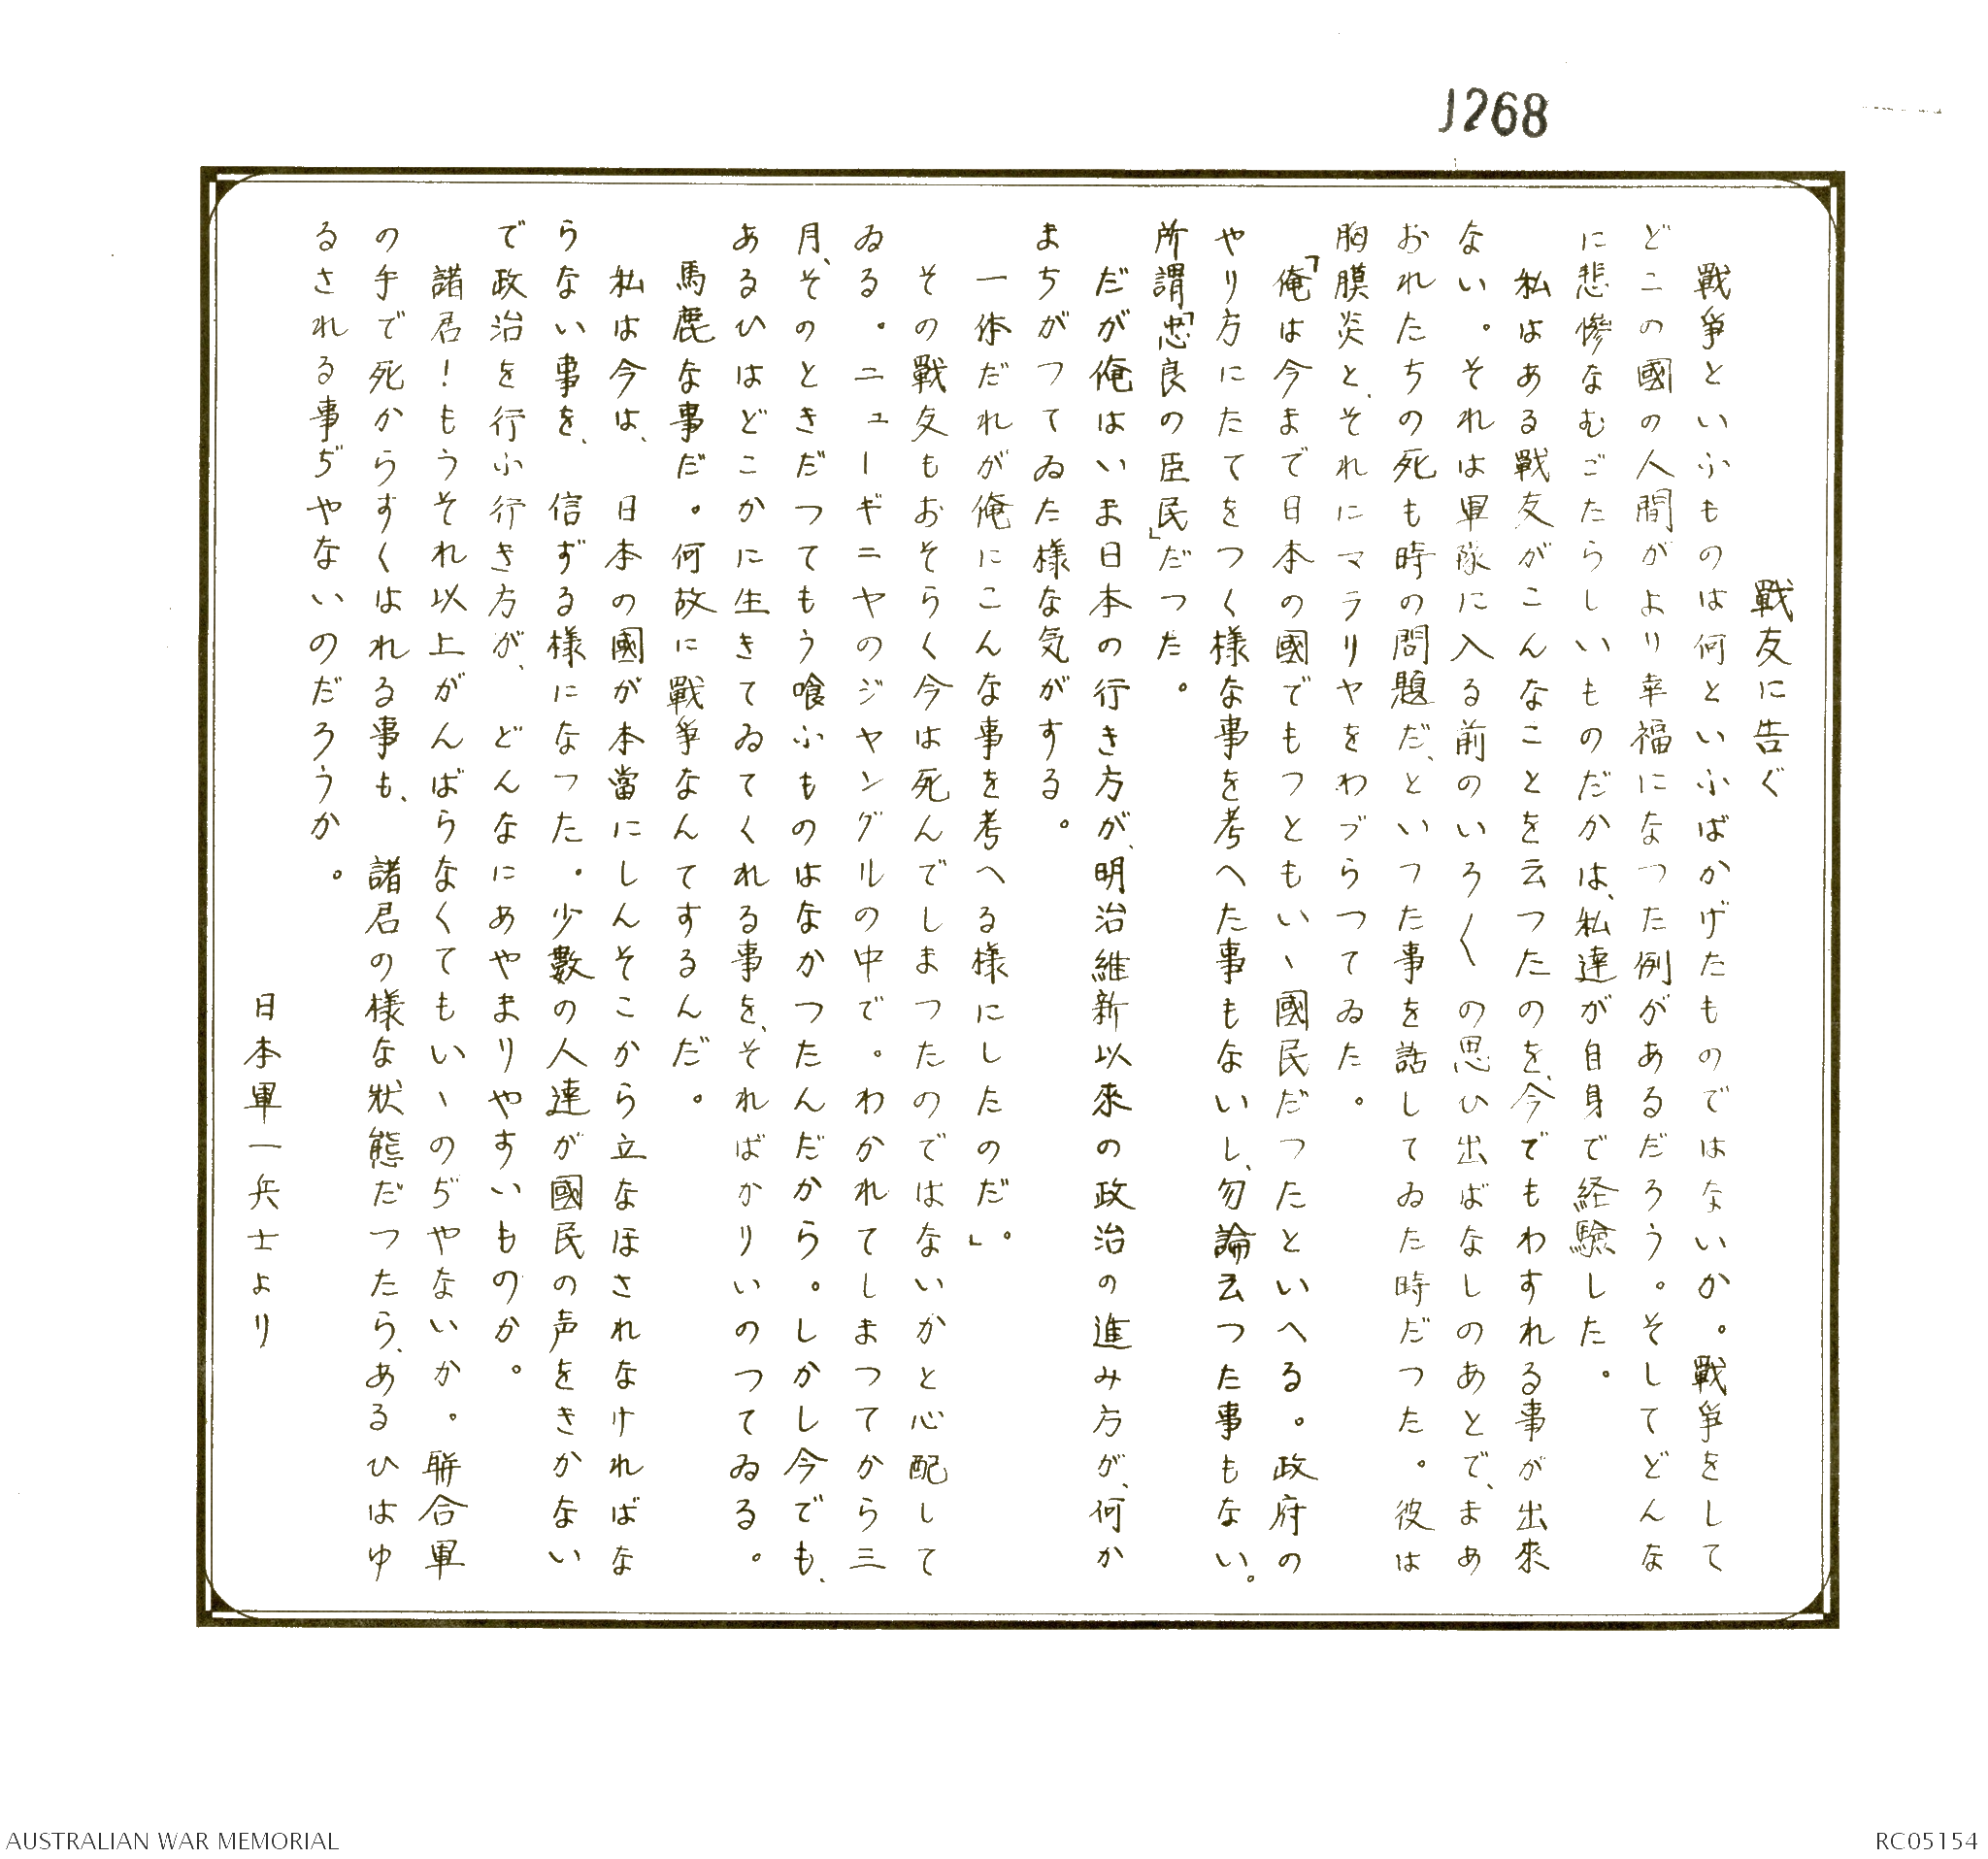 J268
戰友に告ぐ
戰爭といふものは何といふばかげたものではないか。戰爭をして
どこの國の人間がより幸福になつた例があるだろう。そしてどんな
に悲慘なむごたらしいものだかは、私達が自身で経験した。
私はある戰友がこんなことを云つたのを、今でもわすれる事が出來
ない。それは軍隊に入る前のいろ〱の思ひ出ばなしのあとで、まあ
おれたちの死も時の問題だ、といつた事を話してゐた時だつた。彼は
胸膜炎と、それにマラリヤをわづらつてゐた。
「俺は今まで日本の國でもつともいゝ國民だつたといへる。政府の
やり方にたてをつく樣な事を考へた事もないし、勿論云つた事もない。
所謂「忠良の臣民」だつた。
だが俺はいま日本の行き方が、明治維新以來の政治の進み方が、何か
まちがつてゐた樣な気がする。
一体だれが俺にこんな事を考へる樣にしたのだ」。
その戰友もおそらく今は死んでしまつたのではないかと心配して
ゐる。ニューギニヤのジヤングルの中で。わかれてしまつてから三
月、そのときだつてもう喰ふものはなかつたんだから。しかし今でも、
あるひはどこかに生きてゐてくれる事を、そればかりいのつてゐる。
馬鹿な事だ。何故に戰爭なんてするんだ。
私は今は、日本の國が本當にしんそこから立なほされなければな
らない事を、信ずる樣になつた。少數の人達が國民の声をきかない
で政治を行ふ行き方が、どんなにあやまりやすいものか。
諸君！もうそれ以上がんばらなくてもいゝのぢやないか。聯合軍
の手で死からすくはれる事も、諸君の樣な狀態だつたら、あるひはゆ
るされる事ぢやないのだろうか。
日本軍一兵士より
AUSTRALIAN WAR MEMORIAL
RC05154